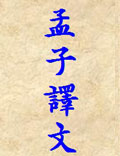 孟子譯文